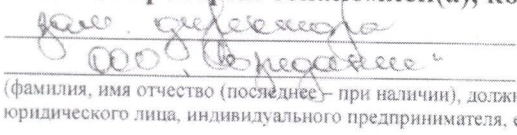 зам. директора
ООО
(фамилия, имя отчество (последнее – при наличии), должн
юридического лица, индивидуального предпринимателя, е